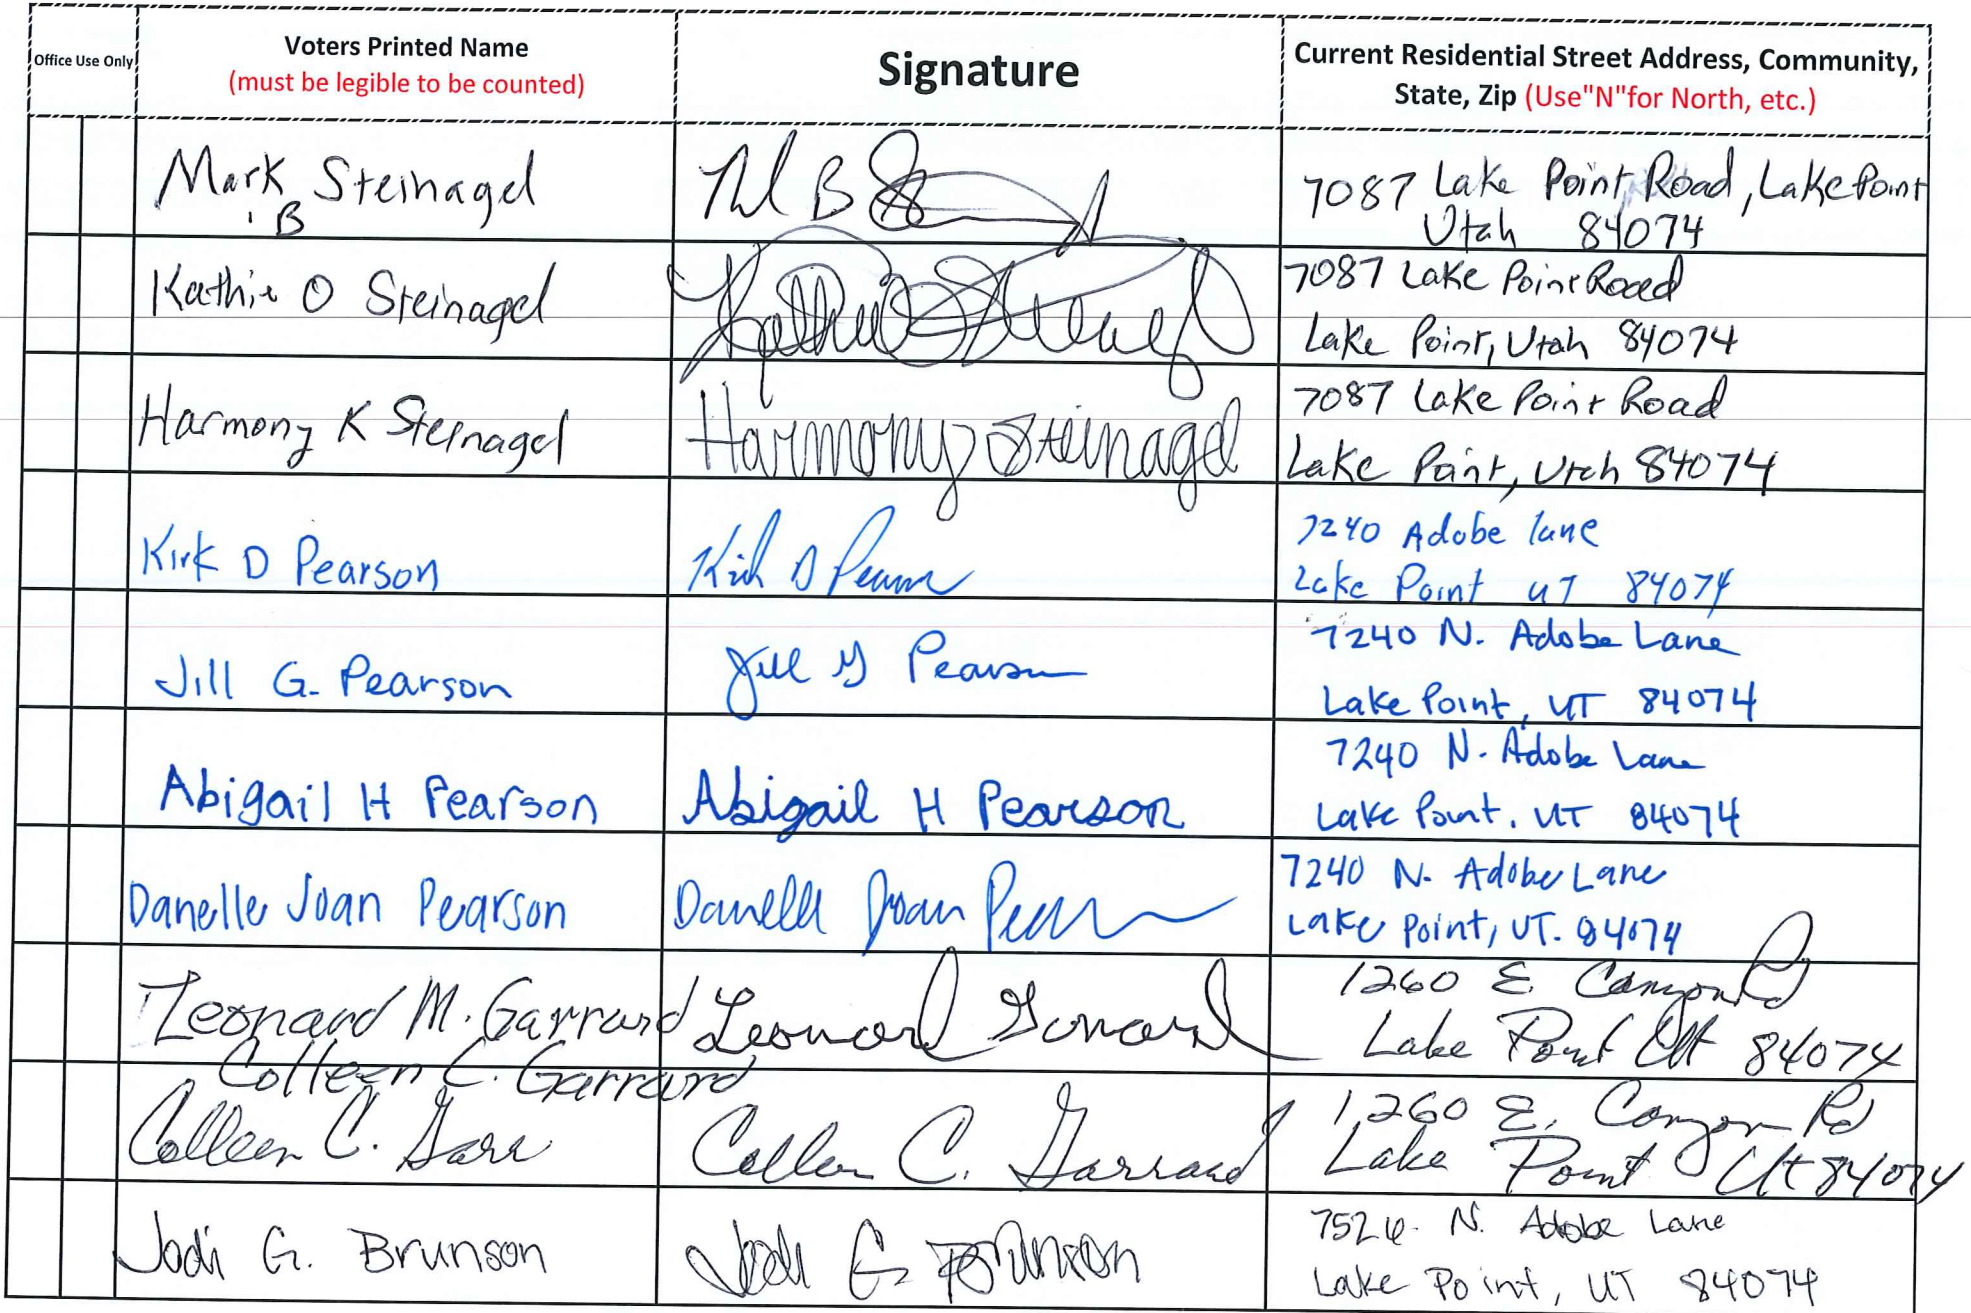 Office Use Only
Voters Printed Name
(must be legible to be counted)
Signature
Current Residential Street Address, Community,
State, Zip (Use"N"for North, etc.)
Mark B Steinagel
B
7087 Lake Point Road, Lake Point
Utah 84074
Kathie O Steinagel
Kathie O Steinagel
7087 Lake Point Road
Lake Point, Utah 84074
Harmony K Steinagel
Harmony Steinagel
7087 Lake Point Road
Lake Point, Utah 84074
Kirk D Pearson
Kirk D Pearson
7240 Adobe lane
Lake Point UT 84074
Jill G. Pearson
Jill G Pearson
7240 N. Adobe Lane
Lake Point, UT 84074
Abigail H Pearson
Abigail H Pearson
7240 N. Adobe Lane
Lake Point. UT 84074
Danelle Joan Pearson
Danelle Joan Pearson
7240 N. Adobe Lane
Lake Point, UT. 84074
Leonard M. Garrard
Leonard Garrard
1260 E. Canyon Rd
Lake Point Ut 84074
Colleen C. Garrard
Colleen C. Garr
Colleen C. Garrard
1260 E. Canyon Rd
Lake Point Ut 84074
Jodi G. Brunson
Jodi G Brunson
7526 N. Adobe Lane
Lake Point, UT 84074